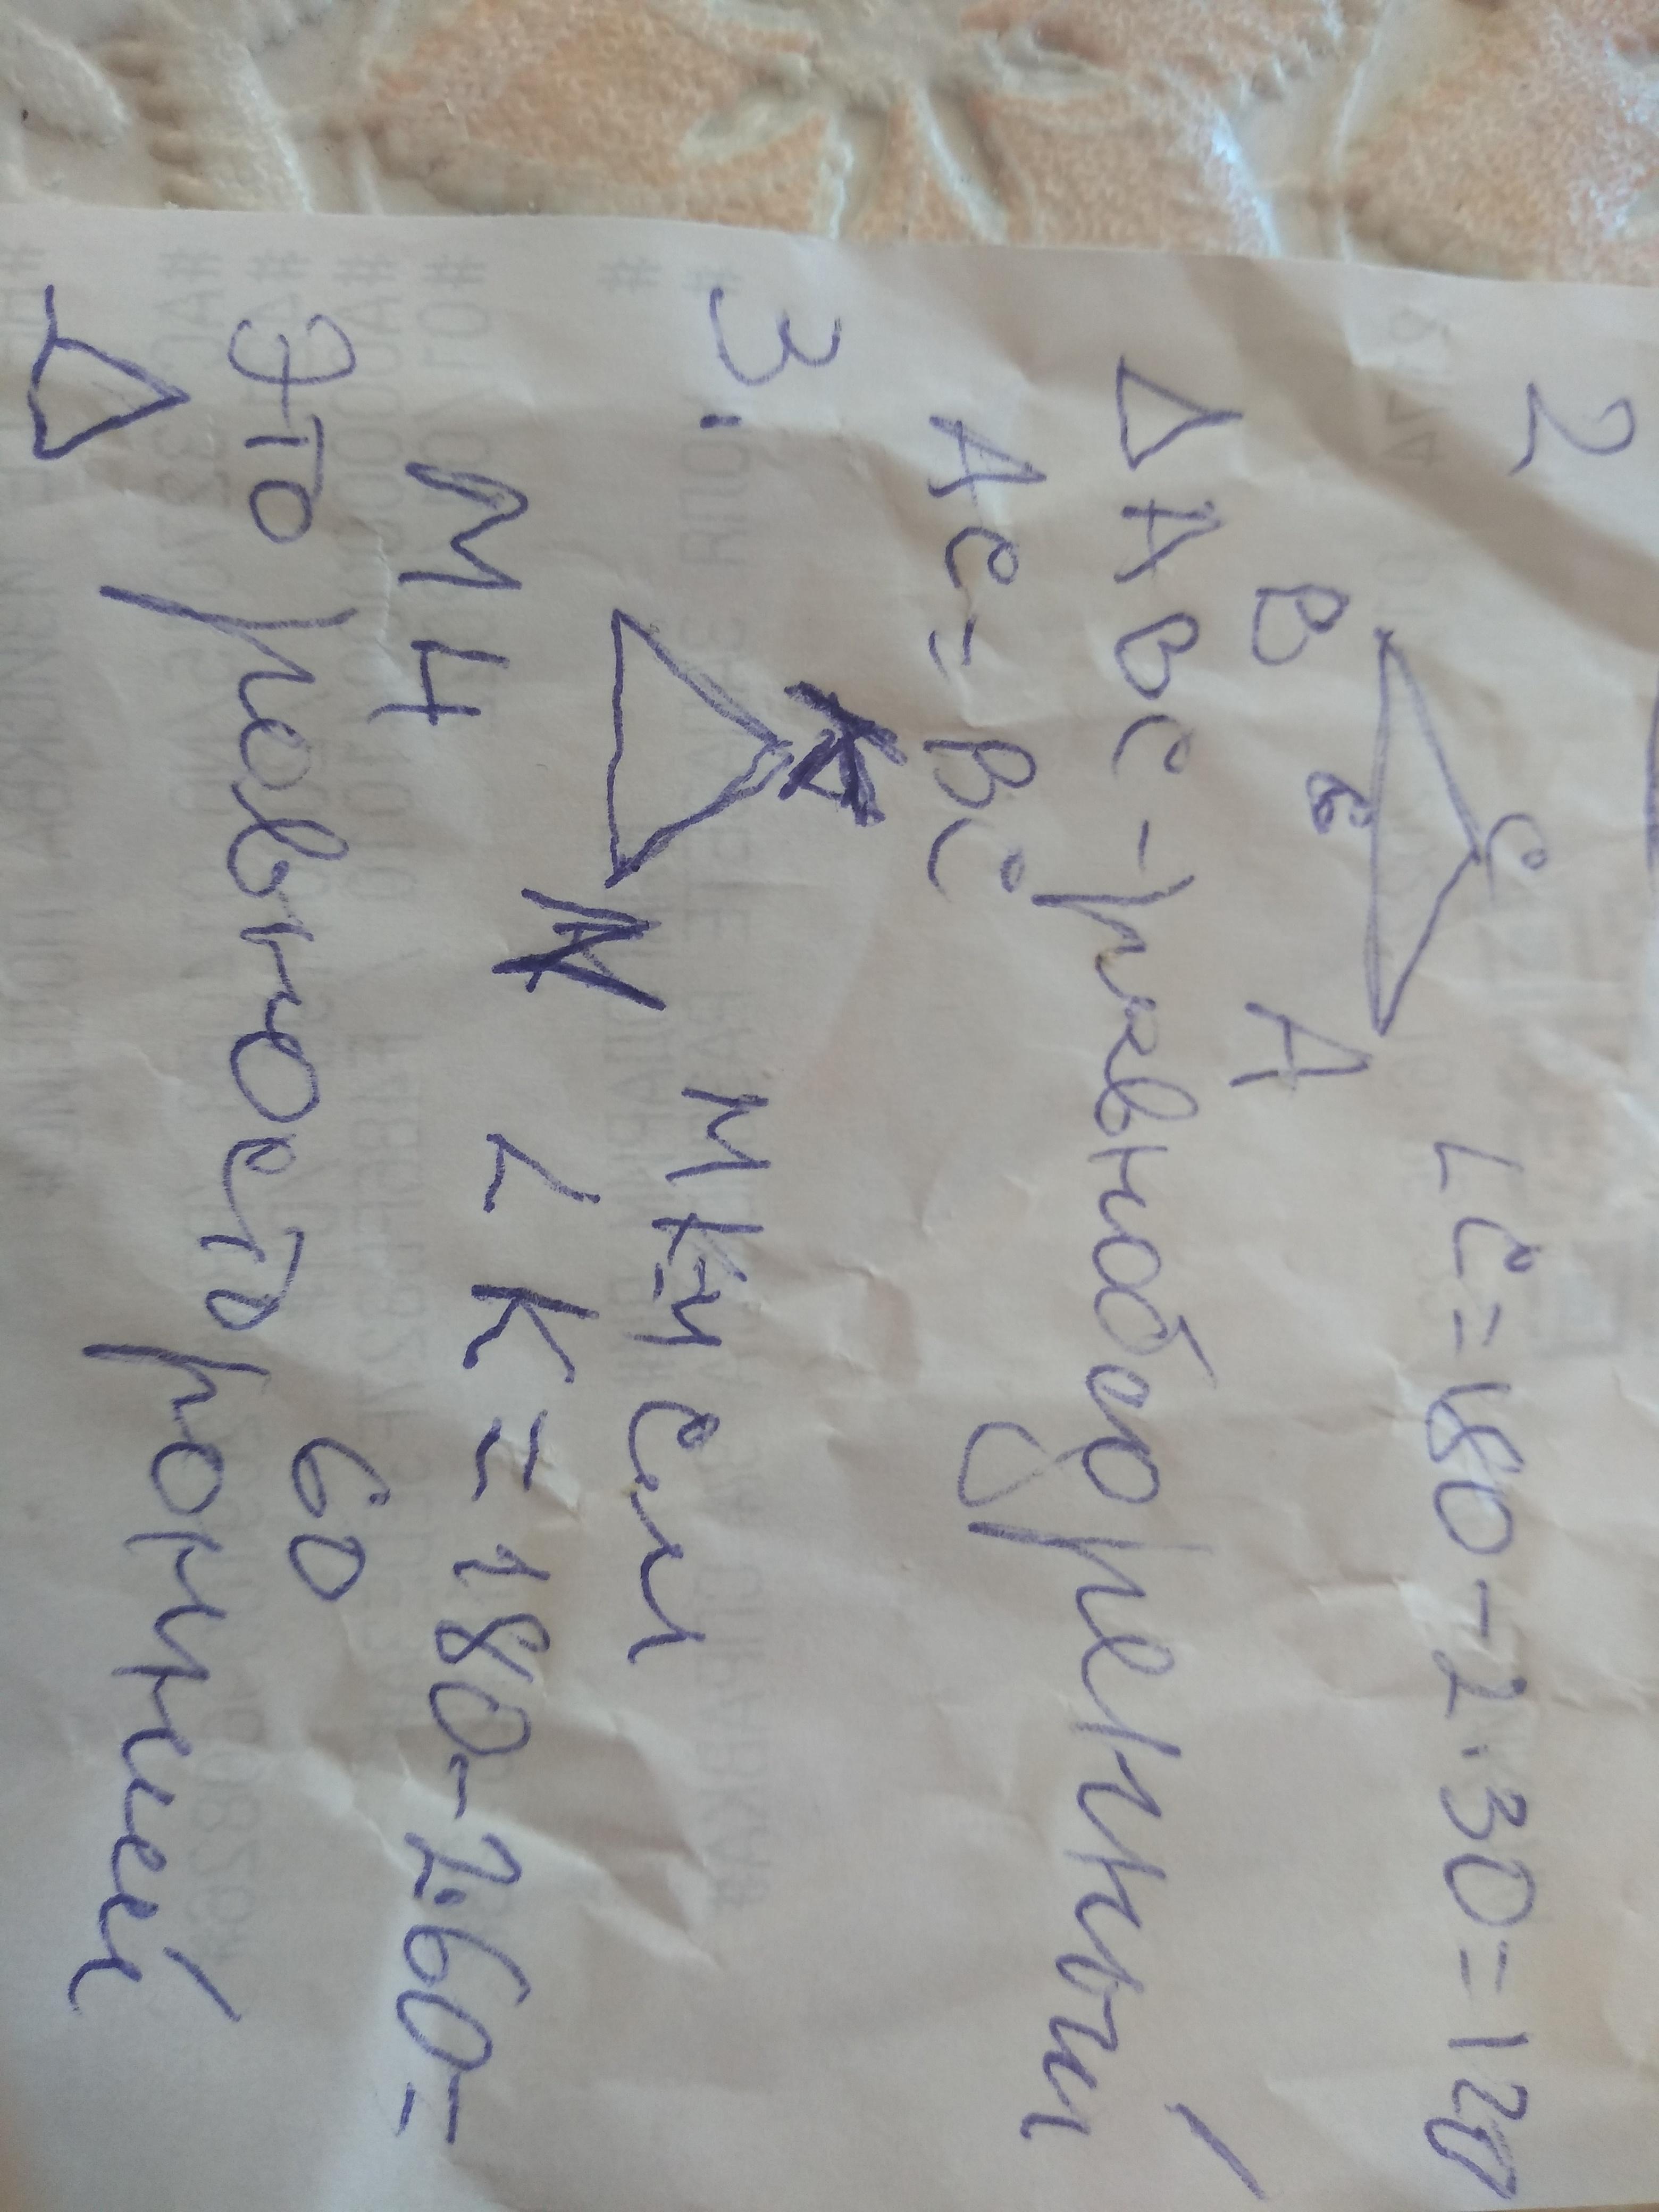 2
C
∠C=180-2·30=120
B 6 A
ΔABC-равнобедренный
AC=BC
3.
K
MK=4 см
N
M 4 ∠K=180-2·60=
60
Это равносторонний
Δ